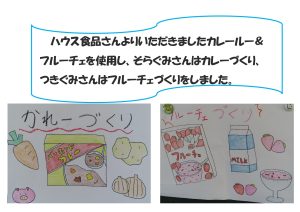 ハウス食品さんよりいただきましたカレールー＆
フルーチェを使用し、そらぐみさんはカレーづくり、
つきぐみさんはフルーチェづくりをしました。
かれーづくり
フルーチェづくり
フルーチェ
MILK